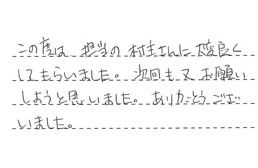 この度は 担当の 村主さんに 大変良く
してもらいました。次回も又お願い
しようと思いました。ありがとうござ
いました。